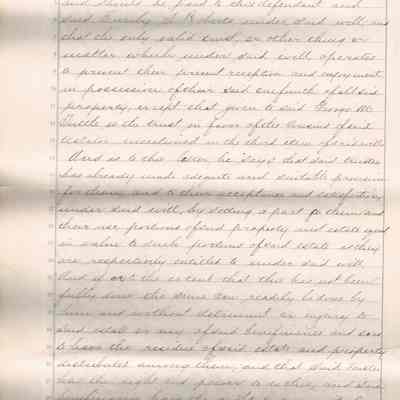 and should be paid to this defendant and
said Emily A. Roberts under said will, and
that the only valid trust, or other thing or
matter which under said will operates
to prevent their present reception and enjoyment
in possession of their said one fourth of all said
property, except that given to said George W.
Tuttle is the trust in favor of the cousins of said
testator mentioned in the third item of said will.
And as to this latter he says that said trustee
has already made adequate and suitable provision
for them, and to their acceptance and satisfaction
under said will, by setting apart to them and
their use portions of said property and estate equal
in value to such portions of said estate as they
are respectively entitled to under said will,
And as to the extent that this has not been
fully done the same can readily be done by
him and without detriment or injury to
said estate or any of said beneficiaries and
to have the residue of said estate and property
distributed among them, and that said trustee
has the right and power to do this, and said
beneficiaries have the right